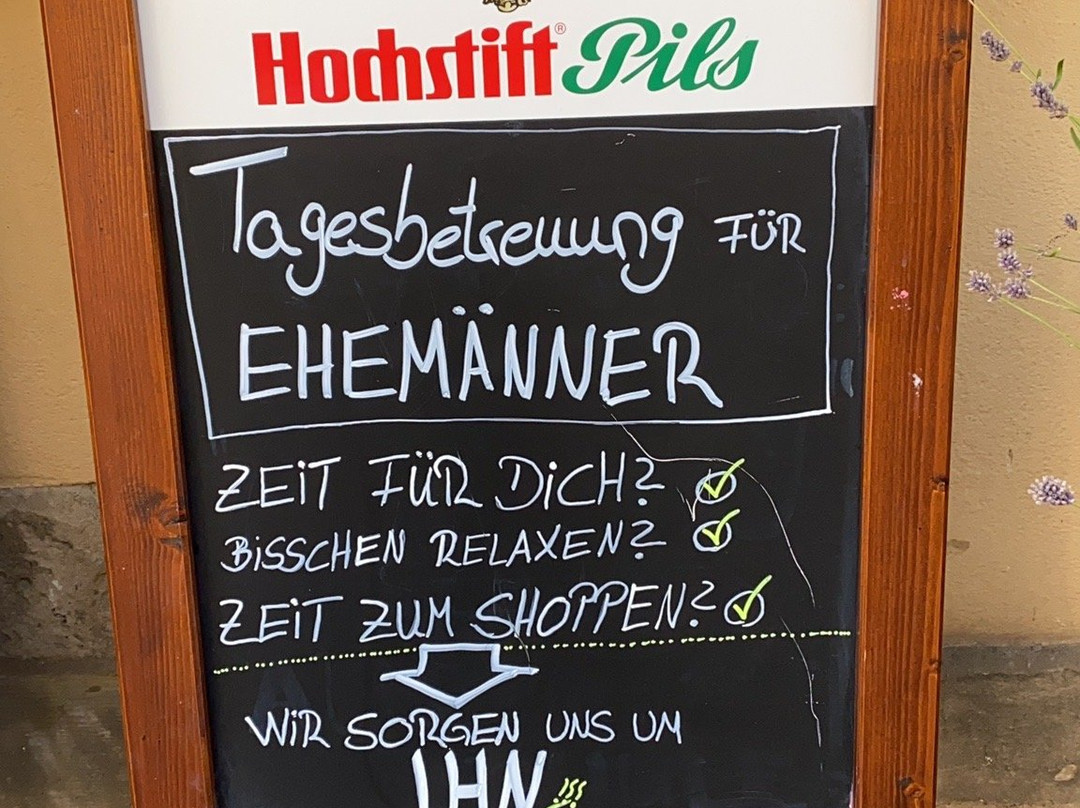 Hochstift® Pils
Tagesbetreuung FÜR
EHEMÄNNER
ZEIT FÜR DICH?
BISSCHEN RELAXEN?
ZEIT ZUM SHOPPEN?
WIR SORGEN UNS UM
IHN